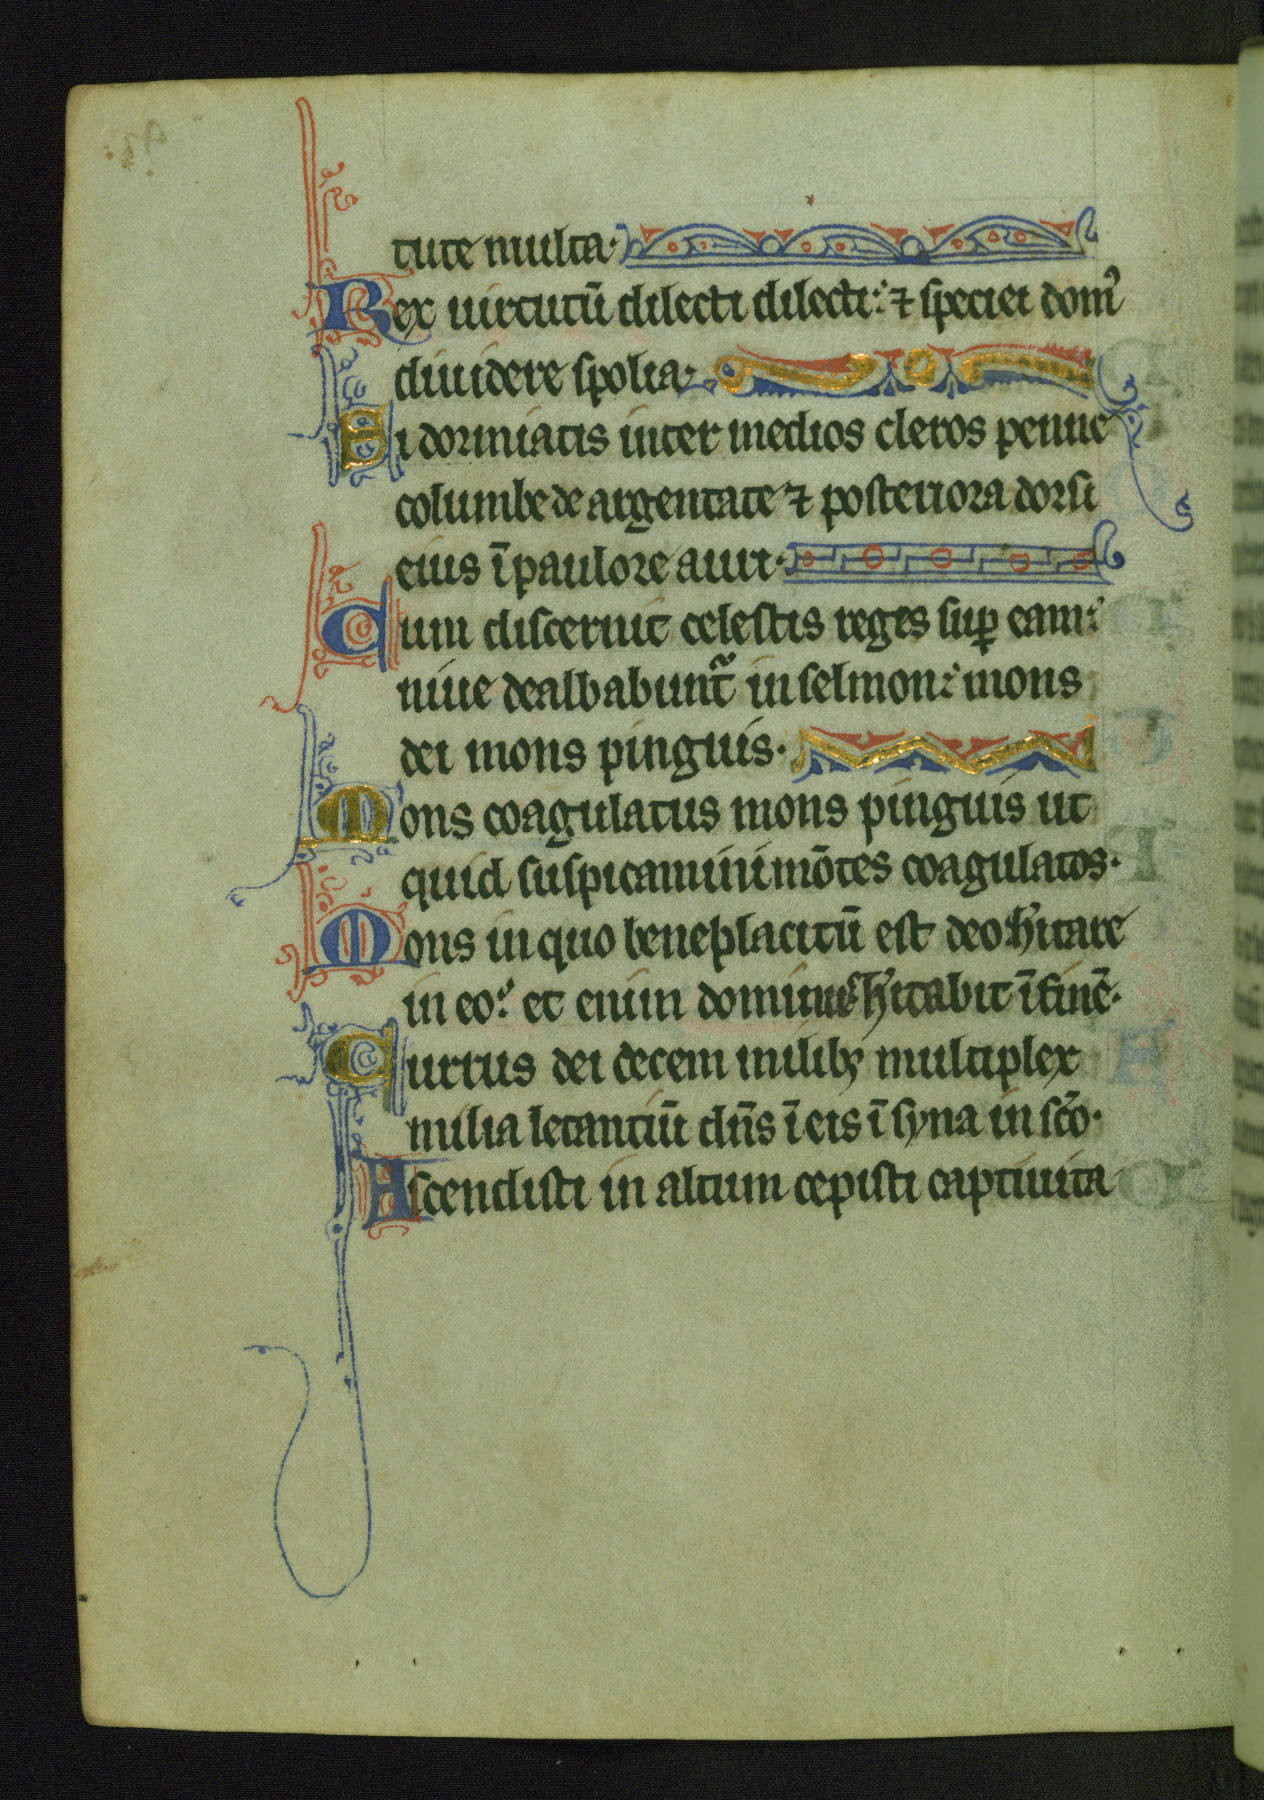 tute multa·
Rex uirtutū dilecti dilecti: ⁊ speciei domꝰ
diuidere spolia·
Si dormiatis inter medios cleros penne
columbe de argentate ⁊ posteriora dorsi
eius ī paulore auri·
Cum discernit celestis reges suꝑ eam:
niue dealbabunt᷑ in selmon: mons
dei mons pinguis·
Mons coagulatus mons pinguis ut
quid suspicamini mōtes coagulatos·
Mons in quo beneplacitū est deo hitare
in eo: et enim dominus hitabit ī finē·
Currus dei decem milibꝫ multiplex
milia letantiū dn̄s ī eis ī syna in sc̄o·
Ascendisti in altum cepisti captiuita